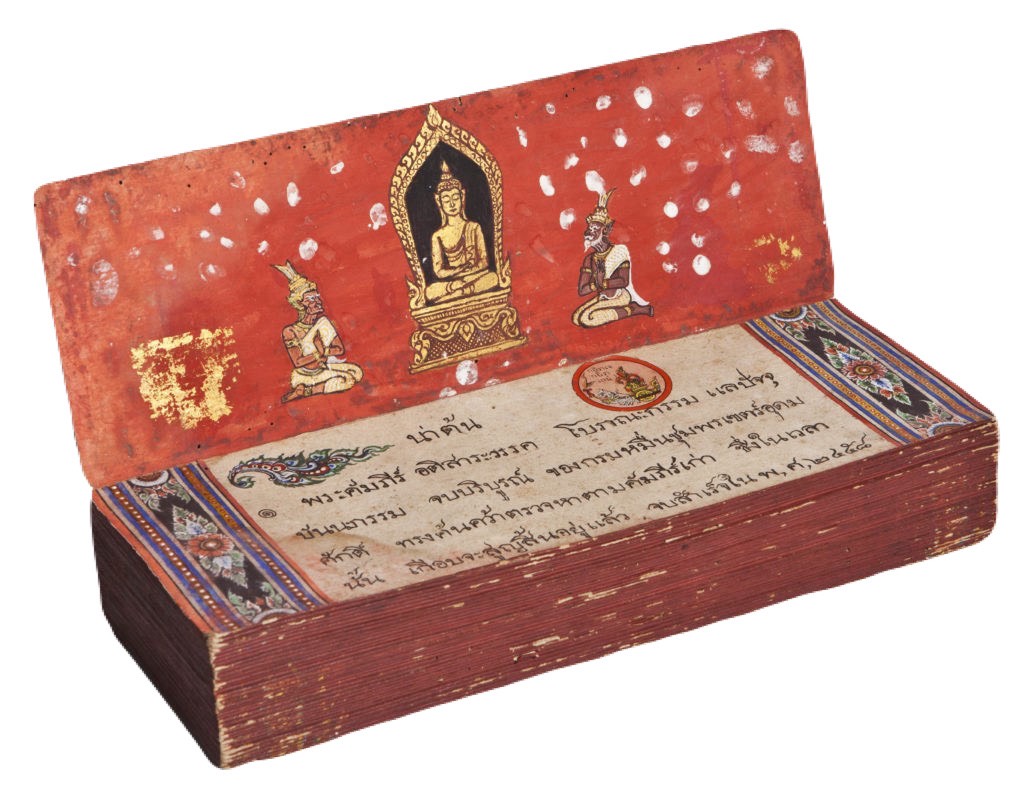 น่าต้น
๏ พระคัมภีร์ อติสาระวรรค โบราณะกรรม แลปัจจุ
ชนนะกรรม จบบริบูรณ์ ของกรมหมื่นชุมพรเขตร์อุดม
ศักดิ์ ทรงค้นคว้าตรวจหาตามคัมภีร์เก่า ซึ่งในเวลา
นั้น เกือบจะสูญสิ้นอยู่แล้ว จบสำเร็จใน พ,ศ,๒๔๕๘